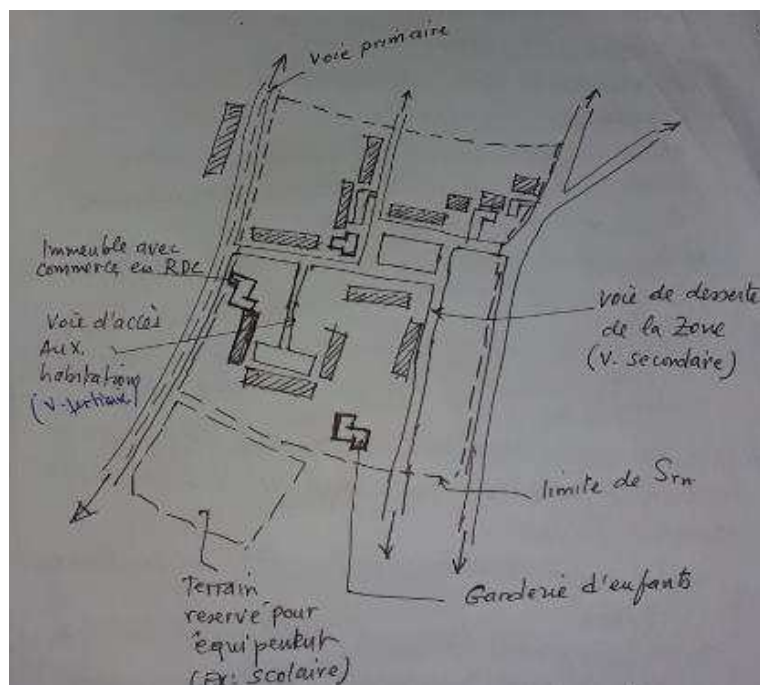 Voie primaire
Immeuble avec
commerce en RDC
Voie d'accès
Aux
habitations
(V. tertiaire)
voie de desserte
de la Zone
(V. secondaire)
limite de Srn
Garderie d'enfants
Terrain
reservé pour
équipement
(Ex: scolaire)